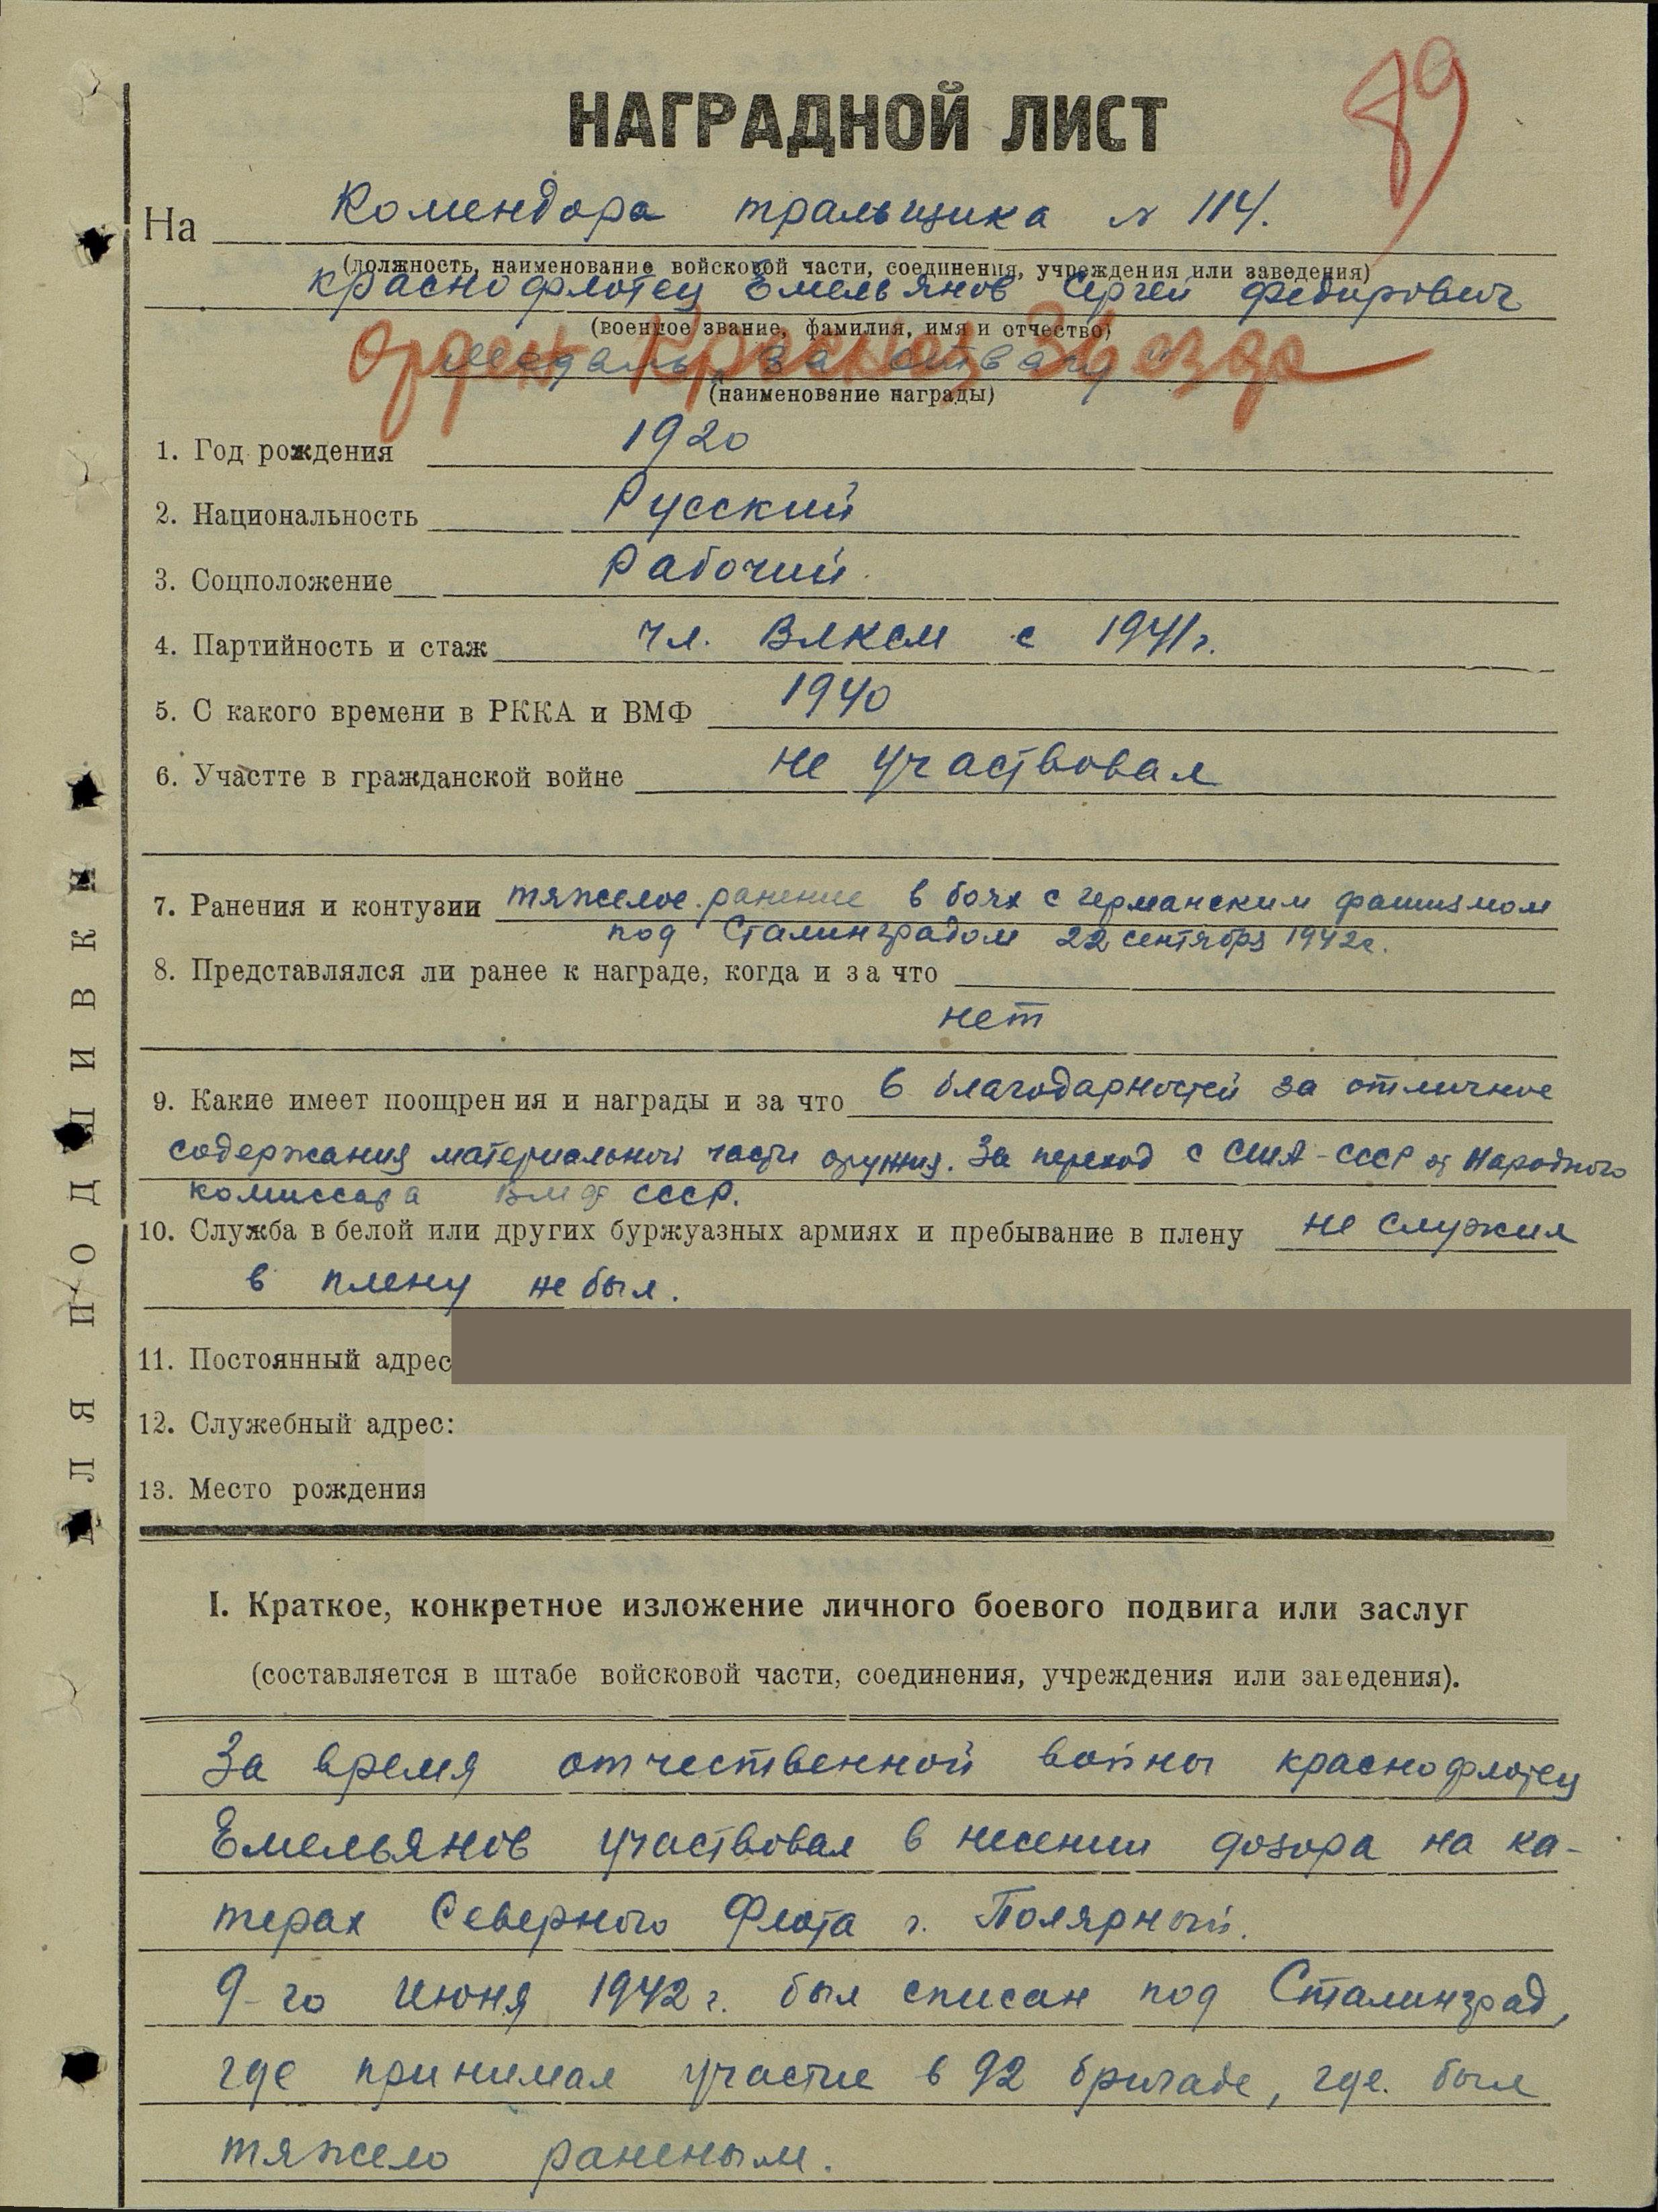 89
НАГРАДНОЙ ЛИСТ
На Комендора тральщика № 114.
(должность, наименование войсковой части, соединения, учреждения или заведения)
краснофлотец Емельянов Сергей Федорович
(военное звание, фамилия, имя и отчество)
медаль "За отвагу"
орден Красная Звезда
(наименование награды)
1. Год рождения 1920
2. Национальность Русский
3. Соцположение Рабочий.
4. Партийность и стаж чл. ВЛКСМ с 1941г.
5. С какого времени в РККА и ВМФ 1940
6. Участте в гражданской войне не участвовал
7. Ранения и контузии тяжелое ранение в боях с германским фашизмом
под Сталинградом 22 сентября 1942г.
8. Представлялся ли ранее к награде, когда и за что
нет
9. Какие имеет поощрения и награды и за что 6 благодарностей за отличное
содержания материальной части оружия. За переход с США-СССР от Народного
комиссара ВМФ СССР.
10. Служба в белой или других буржуазных армиях и пребывание в плену не служил
в плену не был.
11. Постоянный адрес
12. Служебный адрес:
13. Место рождения
I. Краткое, конкретное изложение личного боевого подвига или заслуг
(составляется в штабе войсковой части, соединения, учреждения или заведения).
За время отчественной войны краснофлотец
Емельянов участвовал в несении дозора на ка-
терах Северного Флота г. Полярный.
9-го июня 1942г. был списан под Сталинград,
где принимал участие в 92 бригаде, где был
тяжело раненым.
ДЛЯ ПОДШИВКИ